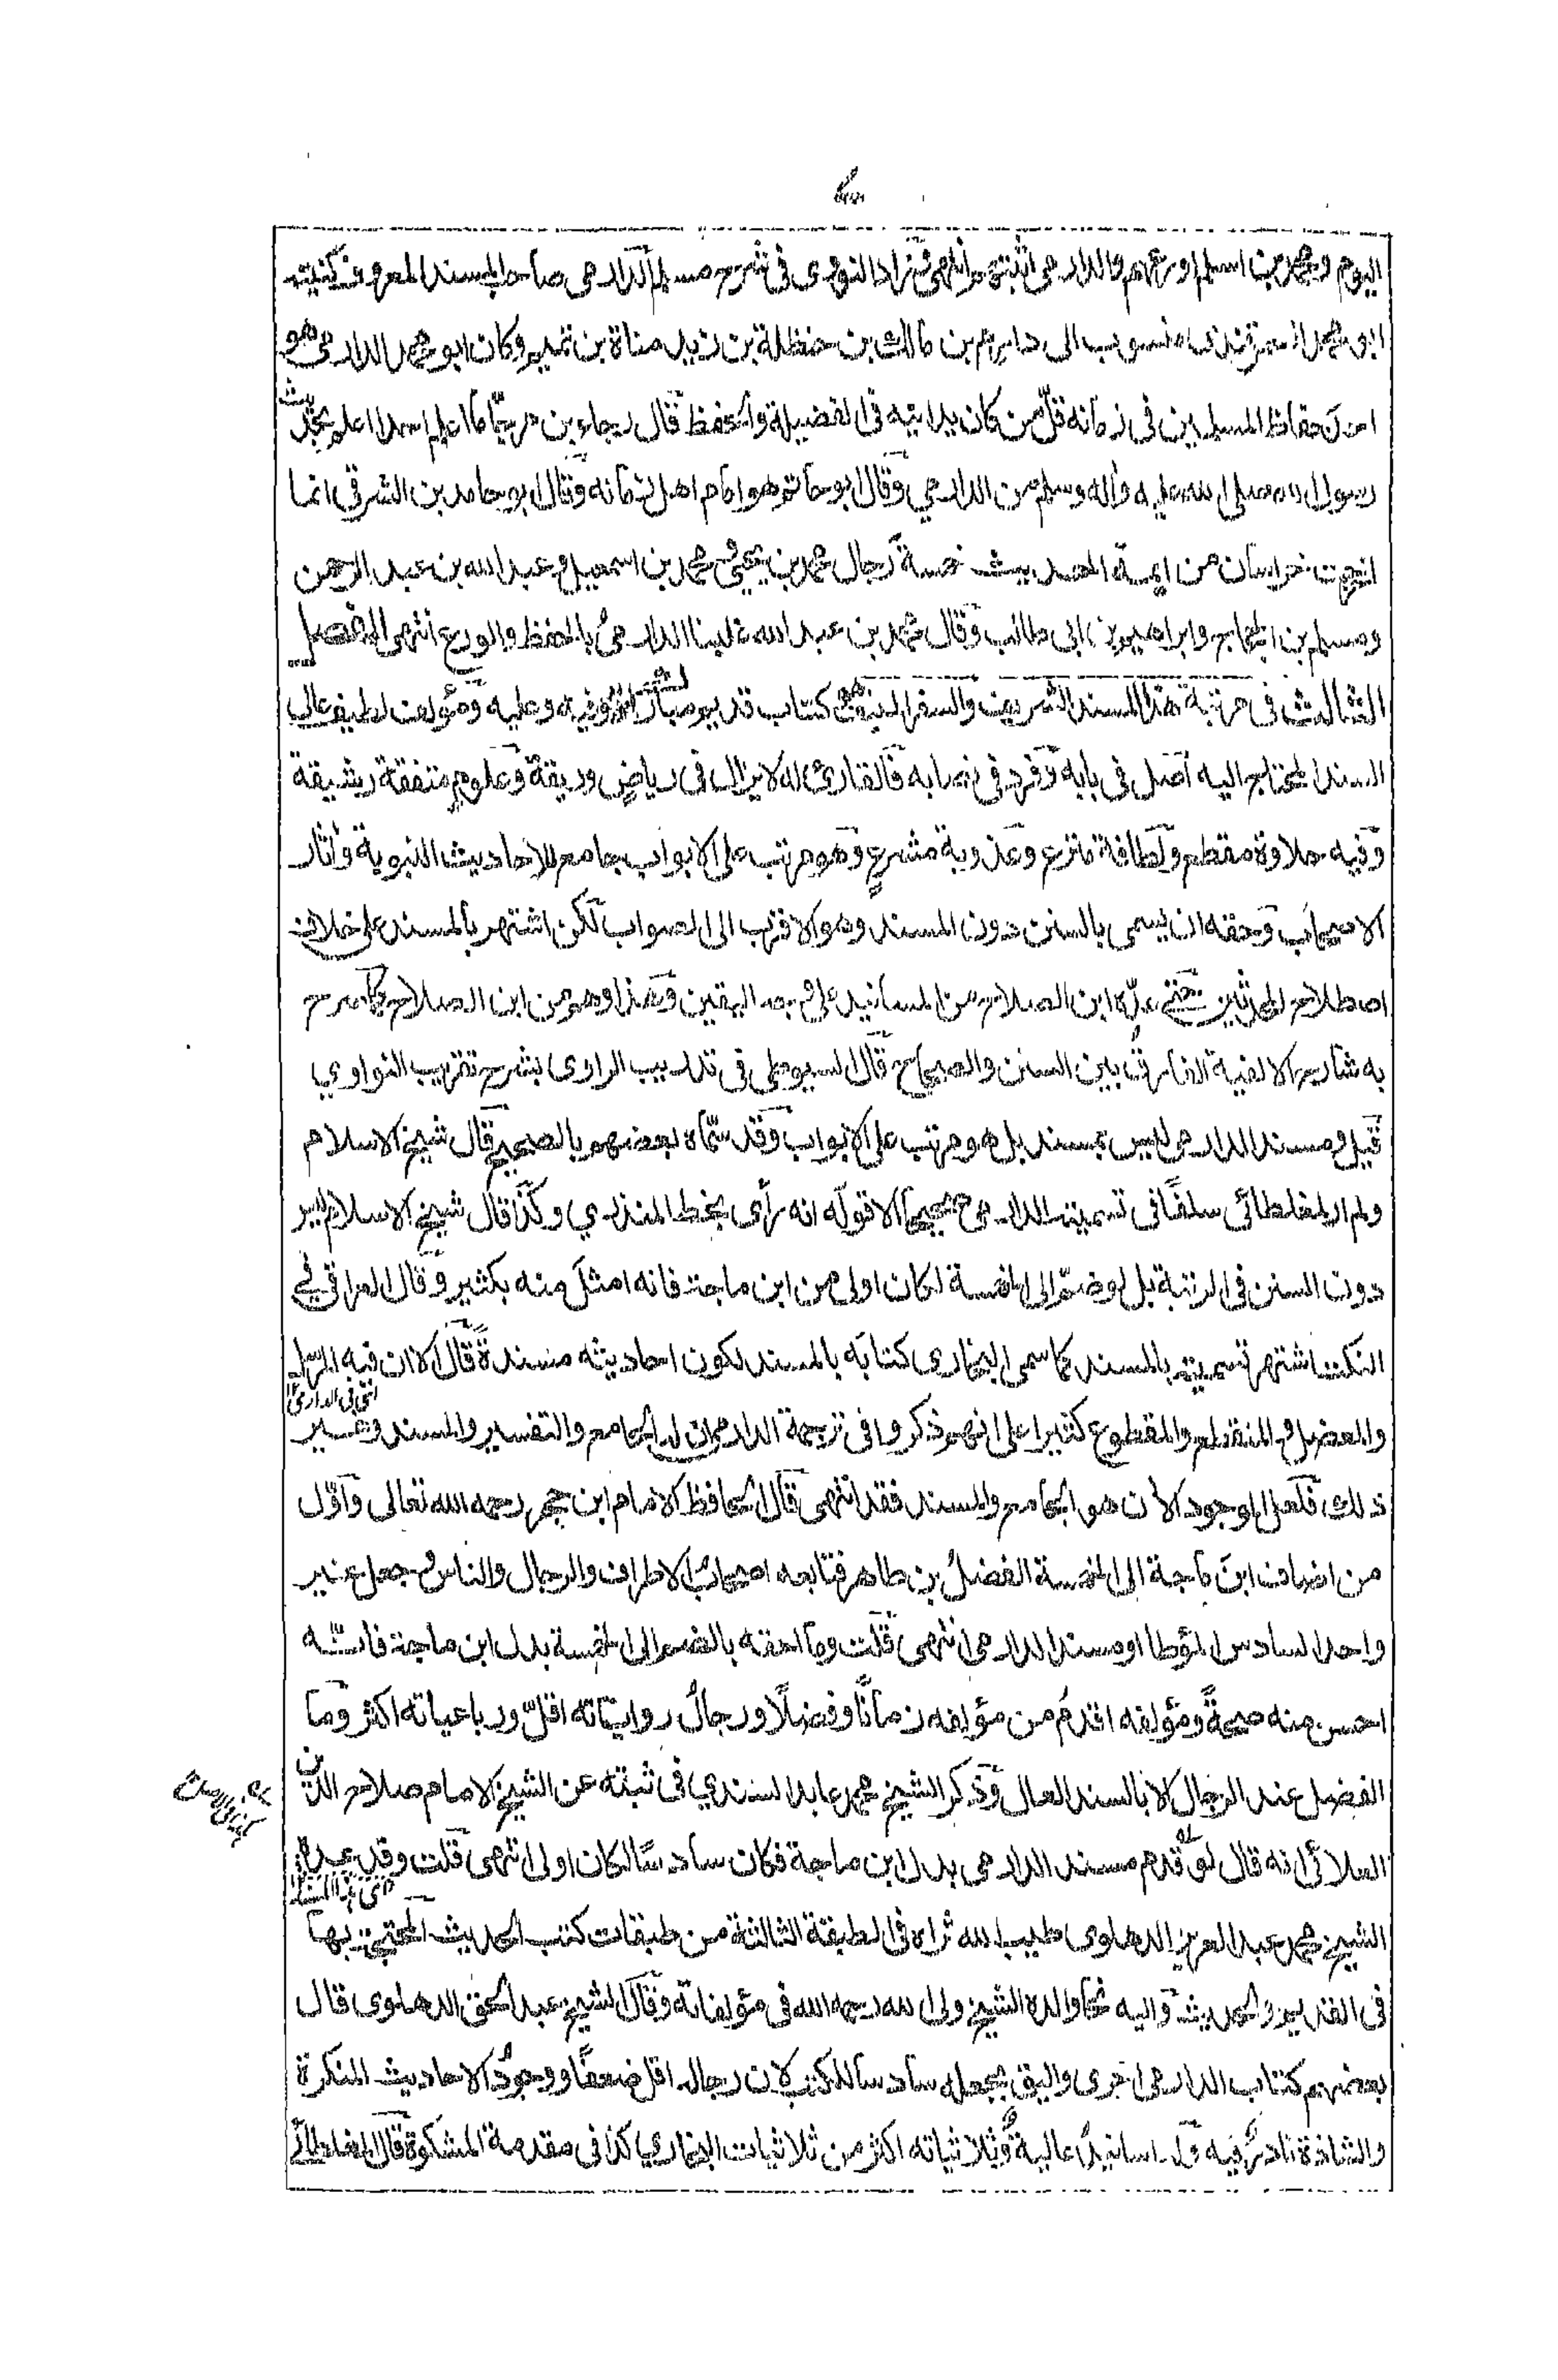 اليوم ومحمد بن اسلم اورعهم والدارمي اثبتهم انتهى وزاد النووى فى شرح مسلم الدارمى صاحب المسند المعروف كنيته
ابو محمد السمرقندى منسوب الى دارم بن مالك بن حنظلة بن زيد مناة بن تميم وكان ابو محمد الدارمى هو
احد حفاظ المسلمين فى زمانه قلّ من كان يدانيه فى الفضيلة والحفظ قال رجاء بن مرجّا ما اعلم احدا اعلم بحديث
رسول الله صلى الله عليه واله وسلم من الدارمي وقال ابو حاتم هو امام اهل زمانه وقال ابو حامد بن الشرقى انما
اخرجت خراسان من ايمة الحديث خمسة رجال محمد بن يحيى ومحمد بن اسمعيل وعبد الله بن عبد الرحمن
ومسلم بن الحجاج وابراهيم بن ابى طالب وقال محمد بن عبد الله غلبنا الدارمىُ بالحفظ والورع انتهى الفصل
الثالث فى مرتبة هذا المسند الشريف والسفر المنيف هو كتاب قديم مبارك فيه وعليه ومؤلف لطيف عالى
السند المحتاج اليه اصل فى بابه وفرد فى نصابه فالقارئ له لا يزال فى رياضٍ وريقة وعلومٍ متفقة رشيقة
وفيه حلاوة مقطع ولطافة منزع وعذوبة مشرعٍ وهو مرتب على الابواب جامع للاحاديث النبوية واثار
الاصحاب وحقه ان يسمى بالسنن دون المسند وهو الاقرب الى الصواب لكن اشتهر بالمسند على خلاف
اصطلاح المحدثين حتى عدّه ابن الصلاح من المسانيد على وجه اليقين وهذا وهم من ابن الصلاح كما صرح
به شارح الالفية الفارق بين السنن والصحاح قال السيوطى فى تدريب الراوى بشرح تقريب النواوي
قيل ومسند الدارمى ليس بمسند بل هو مرتب على الابواب وقد سمّاه بعضهم بالصحيح قال شيخ الاسلام
ولم ار لمغلطائى سلفًا فى تسمية الدارمى صحيحًا الا قوله انه رأى بخط المنذري وكذا قال شيخ الاسلام ليس
دون السنن فى الرتبة بل لو ضمّ الى الخمسة لكان اولى من ابن ماجة فانه امثل منه بكثير وقال العراقى فى
النكت اشتهر تسميته بالمسند كما سمى البخارى كتابه بالمسند لكون احاديثه مسندةً قال الا ان فيه المرسل
والمعضل والمنقطع والمقطوع كثيرا على انهم ذكروا فى ترجمة الدارمى ان له الجامع والتفسير والمسند وغير
ذلك فلعل الموجود الأن هو الجامع والمسند فقد انتهى قال الحافظ الامام ابن حجر رحمه الله تعالى واوّل
من اضاف ابن ماجة الى الخمسة الفضل بن طاهر فتابعه اصحابُ الاطراف والرجال والناس وجعل غير
واحد السادس المؤطا او مسند الدارمى انتهى قلت وما احقه بالضم الى الخمسة بدل ابن ماجة فانّه
احسن منه صحةً ومؤلفه اقدمُ من مؤلفه زمانًا وفضلًا ورجالُ رواياته اقلّ ورباعياته اكثر وما
الفضل عند الرجال الا بالسند العال وذكر الشيخ محمد عابد السندي فى ثبته عن الشيخ الامام صلاح الدين
العلائى انه قال لو قدم مسند الدارمى بدل ابن ماجة فكان سادسًا لكان اولى انتهى قلت وقد عده
الشيخ محمد عبد العزيز الدهلوى طيب الله ثراه فى الطبقة الثالثة من طبقات كتب الحديث المحتج بها
فى القديم والحديث واليه نحا والده الشيخ ولى الله رحمه الله فى مؤلفاته وقال الشيخ عبد الحق الدهلوى قال
بعضهم كتاب الدارمى احرى واليق بجعله سادسا للكتب لان رجاله اقل ضعفًا ووجودُ الاحاديث المنكرة
والشاذة نادرٌ فيه وله اسانيدُ عالية وثلاثياته اكثر من ثلاثيات البخاري كذا فى مقدمة المشكوة قال المغلطائى